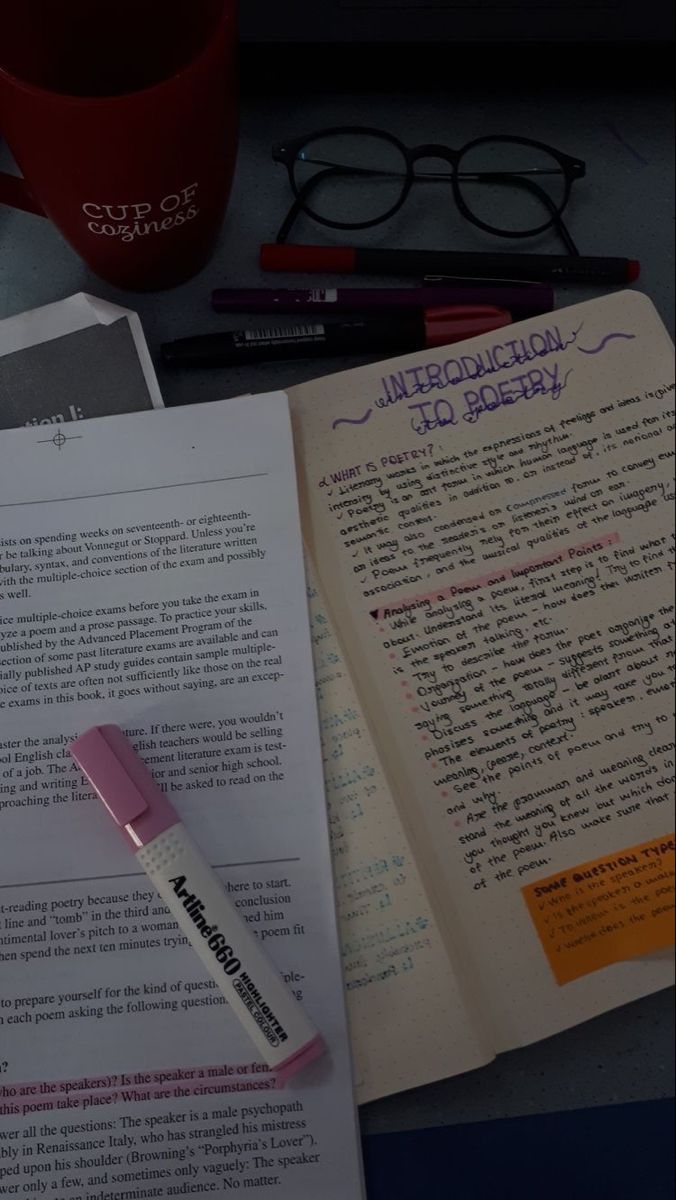 CUP OF
coziness
tion I:
INTRODUCTION
TO POETRY
WHAT IS POETRY? :
✓ Literary works in which the expressions of feelings and ideas is give
intensity by using distinctive style and rhythm.
✓ Poetry is an art form in which human language is used for its
aesthetic qualities in addition to, or instead of, its notional a
semantic content.
✓ It may also condensed or compressed form to convey em
or ideas to the reader's or listener's mind or ear.
✓ Poem frequently rely for their effect on imagery,
association, and the musical qualities of the language us
▼ Analysing a Poem and Important Points :
While analysing a poem, first step is to find what
about. Understand its literal meaning! Try to find th
Emotion of the poem - how does the written
is the speaker talking, etc.
Try to describe the form.
Organization - how does the poet organize the
Journey of the poem - suggests something at
saying something totally different from that
Discuss the language - be alert about
phasises something and it may take you t
The elements of poetry : speaker, emot
meaning, context.
See the points of poem and try to
and why.
Are the grammar and meaning clear
stand the meaning of all the words in
you thought you knew but which do
of the poem. Also make sure that
of the poem.
SOME QUESTION TYPE
✓ Who is the speaker?
✓ Is the speaker a male
✓ To whom is the poe
✓ Where does the poem
sists on spending weeks on seventeenth- or eighteenth-
r be talking about Vonnegut or Stoppard. Unless you're
bulary, syntax, and conventions of the literature written
with the multiple-choice section of the exam and possibly
s well.
ice multiple-choice exams before you take the exam in
yze a poem and a prose passage. To practice your skills,
ublished by the Advanced Placement Program of the
ection of some past literature exams are available and can
ially published AP study guides contain sample multiple-
oice of texts are often not sufficiently like those on the real
e exams in this book, it goes without saying, are an excep-
aster the analysi ture. If there were, you wouldn't
ool English cla glish teachers would be selling
of a job. The A cement literature exam is test-
ing and writing E ior and senior high school.
proaching the litera 'll be asked to read on the
t-reading poetry because they where to start.
line and "tomb" in the third and conclusion
ntimental lover's pitch to a woman ned him
hen spend the next ten minutes tryin poem fit
to prepare yourself for the kind of questi iple-
n each poem asking the following question ng
?
who are the speakers)? Is the speaker a male or fem
this poem take place? What are the circumstances?
wer all the questions: The speaker is a male psychopath
bly in Renaissance Italy, who has strangled his mistress
ped upon his shoulder (Browning's "Porphyria's Lover").
wer only a few, and sometimes only vaguely: The speaker
an indeterminate audience. No matter.
Artline 660
HIGHLIGHTER
PASTEL COLOUR